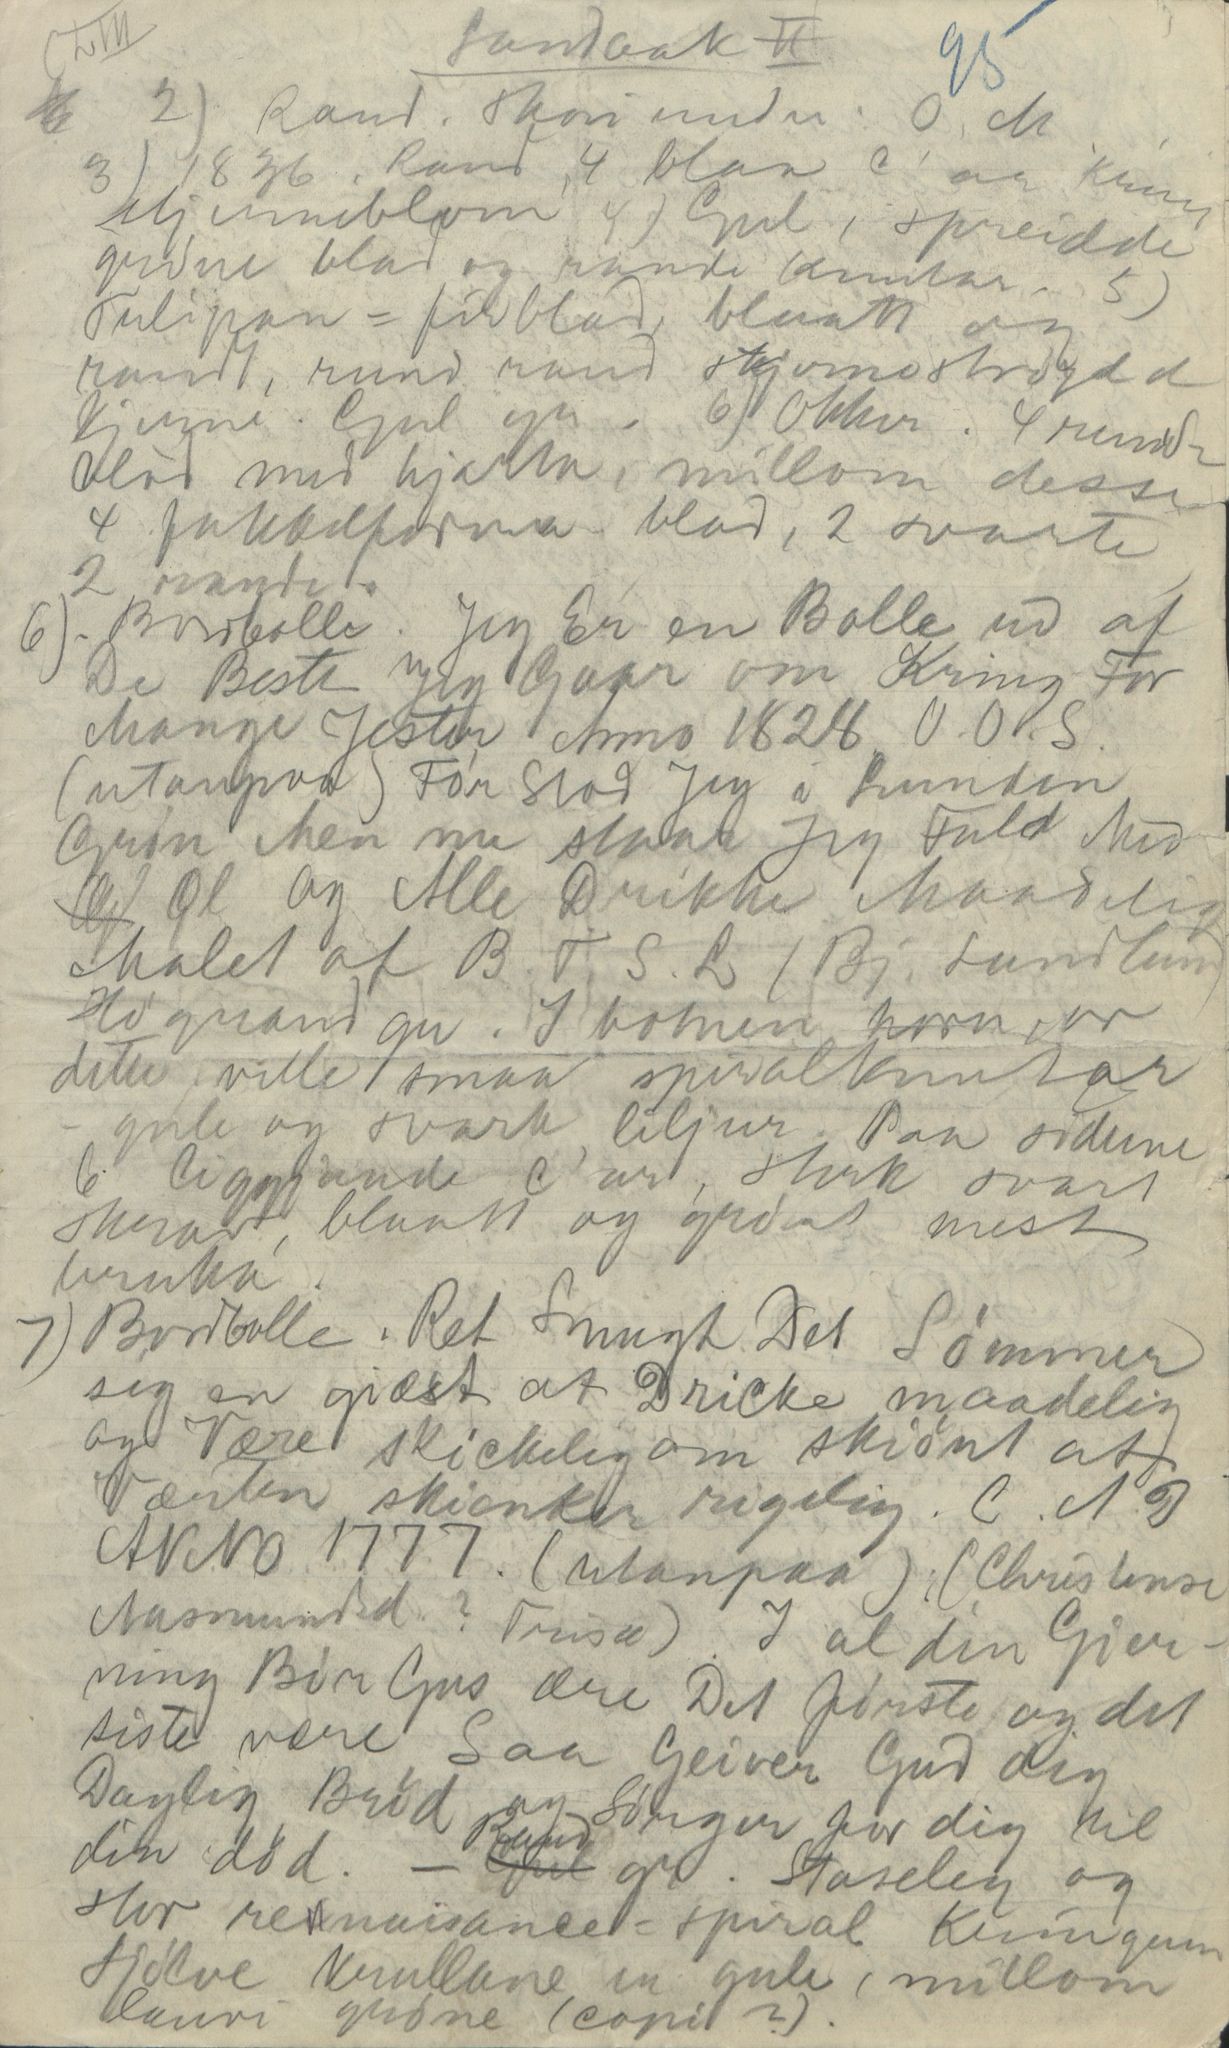 Sundaak II
95
2) Raud. Skori under. O. M
3) 1836. Raud, 4 blaa C'ar kring
stjerneblom 4) Gul, spreidde
gröne blad og raude knutar. 5)
Tulipan = firblad, blaatt og
raudt, rund raud stjernoströydd
kjerne. Gul gr. 6) Okker. 4 runde
blad med hjarta, millom desse
4 blad, 2 svarte
2 raude.
6). Bordbolle. Jeg Er en Bolle ud af
De Beste Jeg Gaar om Kring For
Mange Jester Anno 1828 O. O. S.
(utanpaa) För Stod Jeg i Lunden
Grön Men nu staar Jeg Fuld Med
Öl og Alle Drikke Maadelig
Malet af B. T. S. L (Bj. Sundlund)
Högraud gr. I botnen
dette ville smaa spiralknutar
- gule og svarte liljur. Paa sidune
6 liggjande C'ar, sterk svart
skorad, blaatt og grönt mest
bruka.
7) Bordbolle. Ret Smugt Det Sömmer
sig en giæst at Dricke maadelig
og Være skickelig om skiönt at
Værten skienker rigelig. C. A. D
ANNO 1777. (utanpaa). (Christense
Aasmundsd. ? Trisæ). I al din Gier-
ning Bör Gus ære Det förste og det
siste være Saa Geiver Gud dig
Daglig Bröd og Sörger for dig til
din död. — Raud gr. Staseleg og
stor rennaisance-spiral Kringum
Sjölve Krullane er gule, millom
gröne (copi ?).